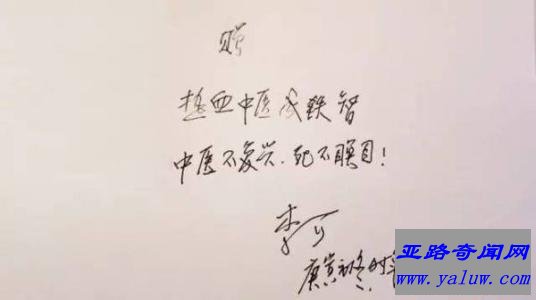 赠
热血中医成铁智
中医不复兴、死不瞑目!
李可
庚寅初冬时
亚路奇闻网
www.yaluw.com